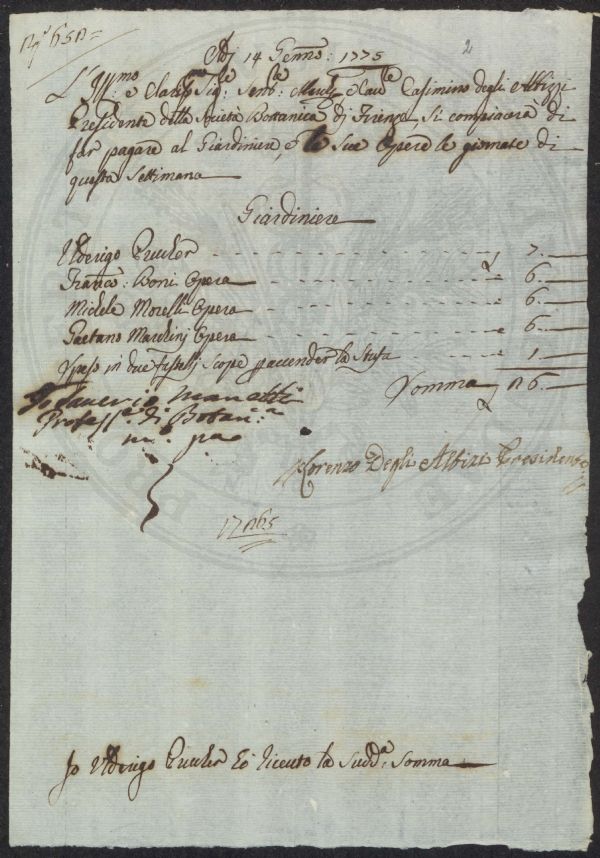 2
Adj 14 Genn:o 1775
L'Ill:mo e Clariss:mo Sig:re Sen:re Casimirro degli Albizzi
Presidente della Società Bottanica di Firenze, si compiacerà di
far pagare al Giardiniere, e le sue Opere le giornate di
questa settimana
Giardiniere
Ulderigo Prucher 7.
Franc:o Boni Opera 6.
Michele Morelli Opera 6.
Gaetano Marchinj Opera 6.
Speso in due fastelli scope p accender la stufa 1.
Somma 26.
Saverio Manetti
Profess:e di Botan:a
m:o pa
Lorenzo Degli Albizi Presidente
Jo Ulderigo Prucher hò riceuto la Sudd:a Somma